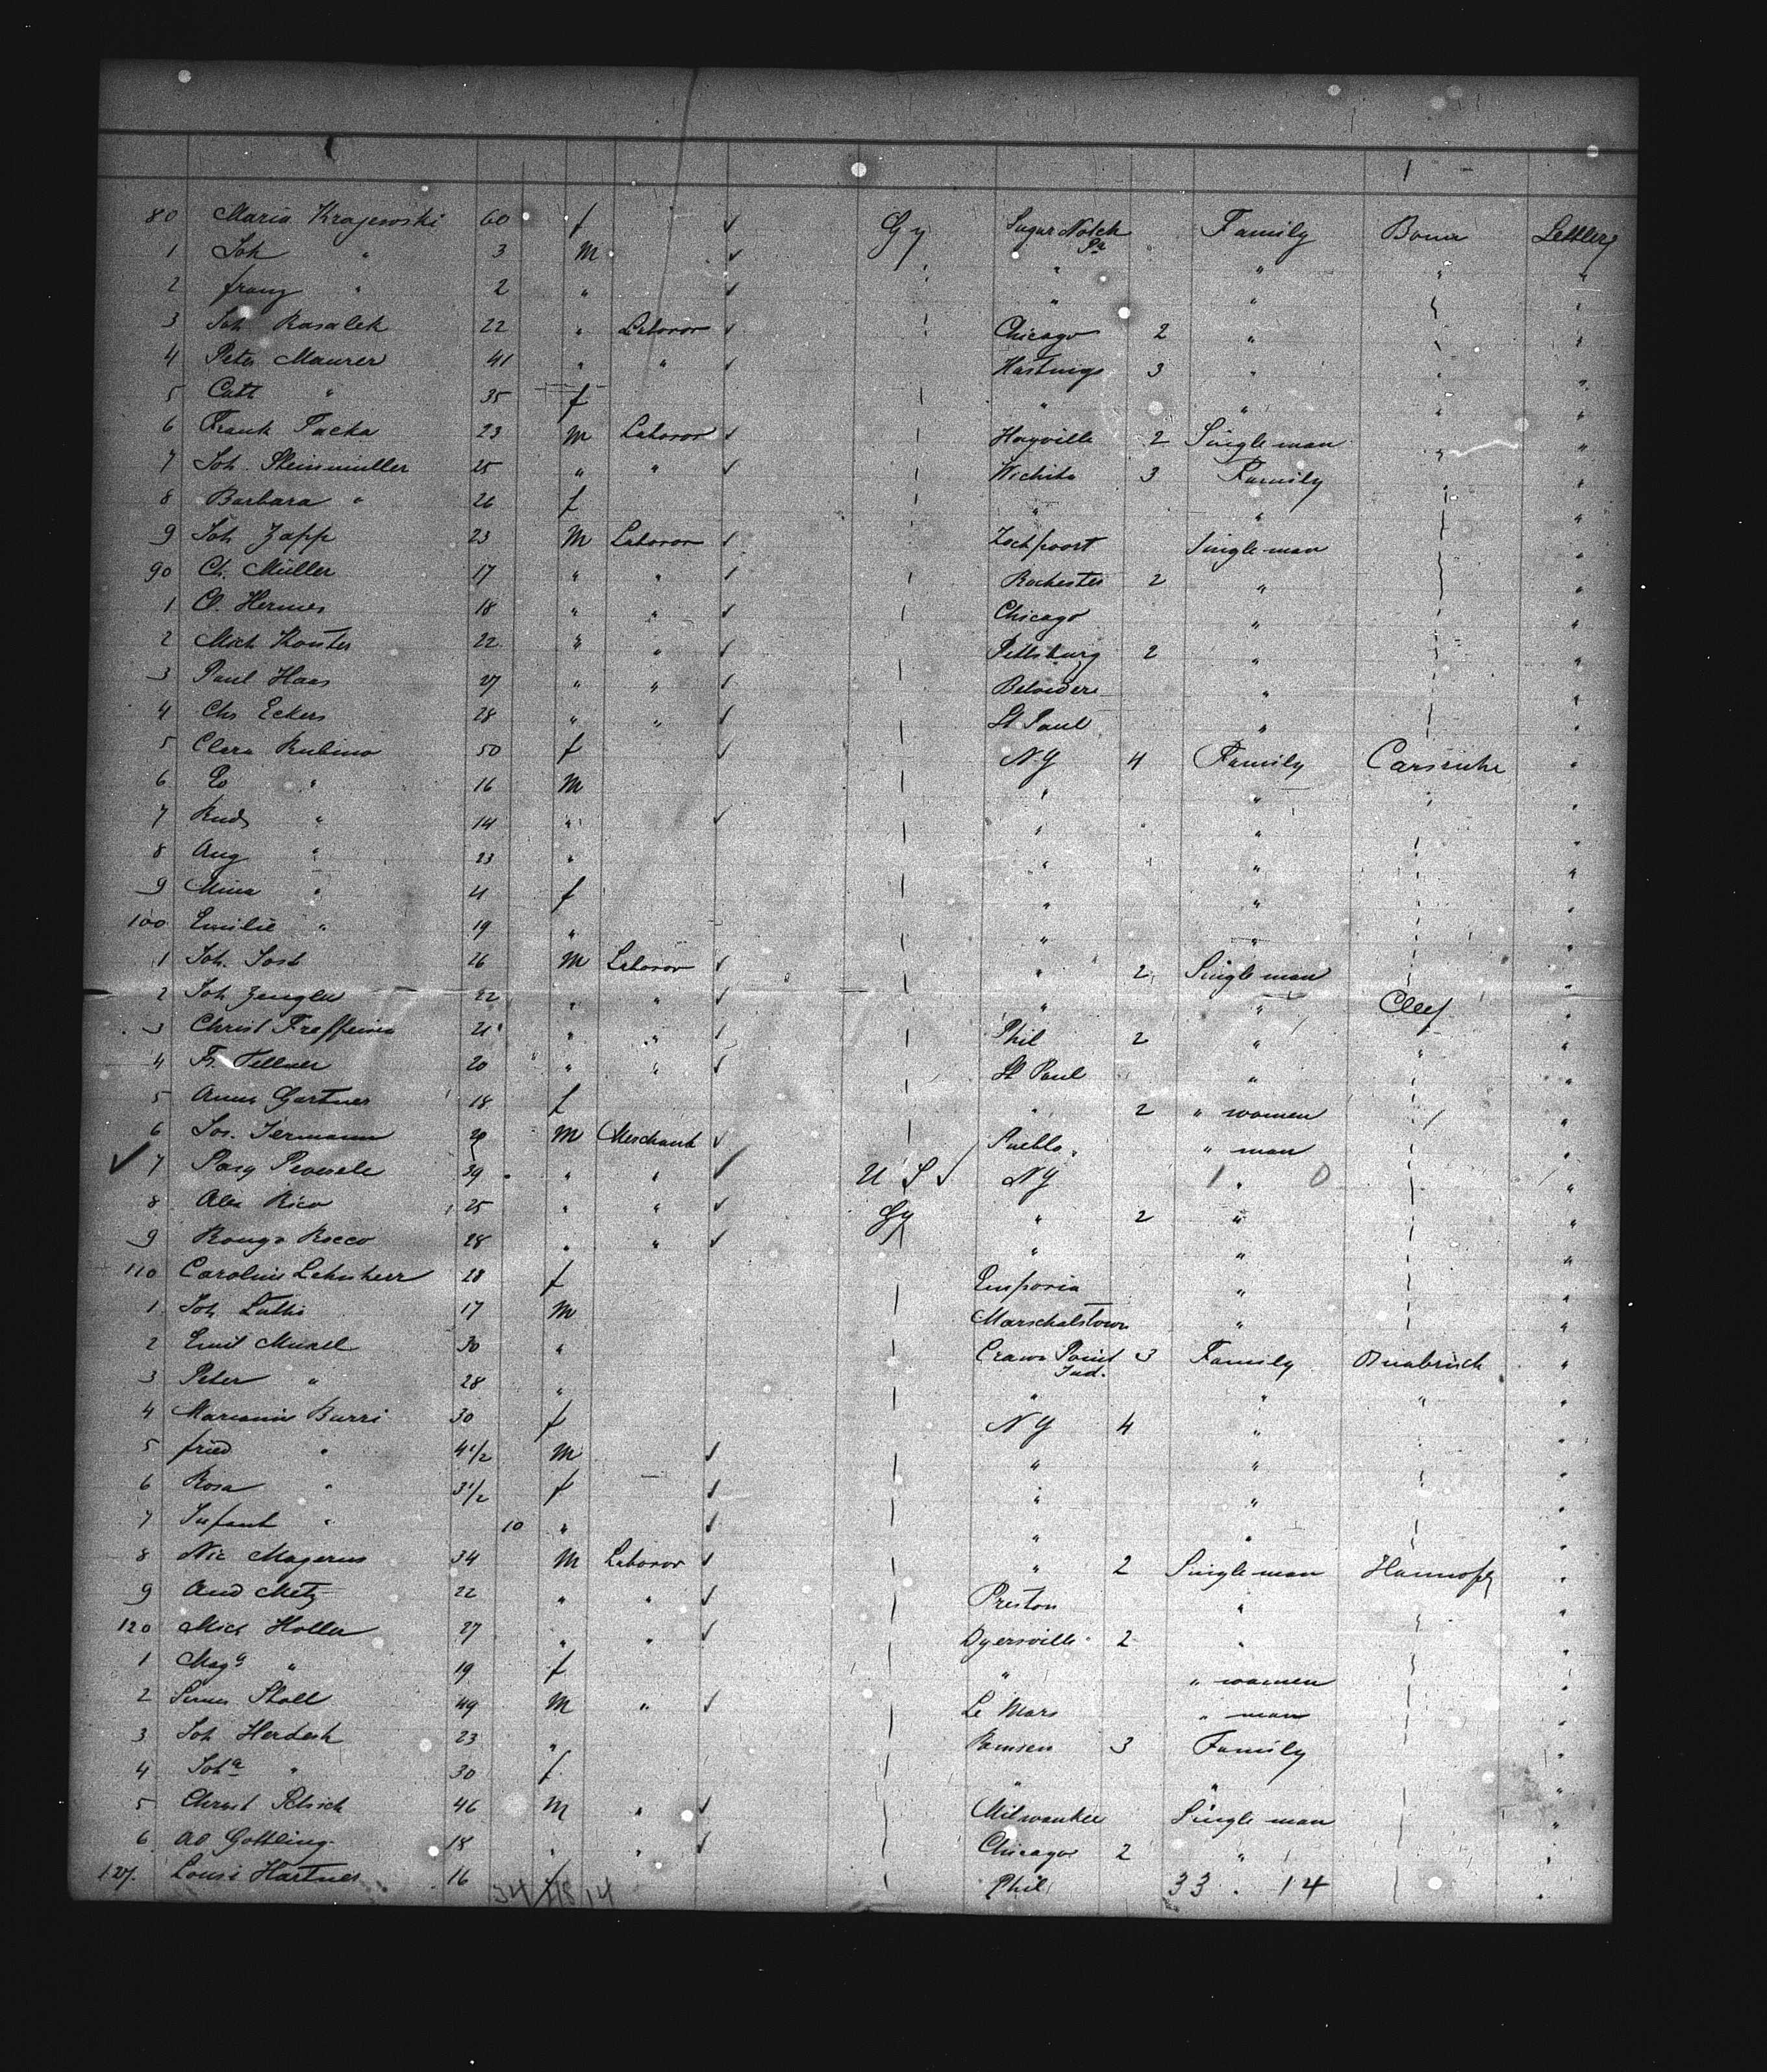 80 Maria Krajewski 60 f ✓ Gy Sugar Notch Pa Family Bonn Settlers
1 Joh " 3 M ✓ " " " "
2 franz " 2 " ✓ " " "
3 Joh 22 " Laboror ✓ Chicago 2 " "
4 Peter Maurer 41 " " ✓ Hastings 3 " " "
5 Cath " 35 f " " " "
6 Frank Packa 23 M Laboror ✓ Hayville 2 Single man " "
7 Joh. Steinmüller 25 " " ✓ Wichita 3 Family " "
8 Barbara " 26 f " " "
9 Joh Zapp 23 M Laboror ✓ Lockpoort Single man "
90 Ch. Müller 17 " " ✓ Rochester 2 " "
1 Cl. Hermes 18 " " ✓ Chicago " "
2 Mich Konter 22 " " ✓ Pittsburg 2 " "
3 Paul Haas 27 " " ✓ Belvidere " "
4 Chs Eckers 28 " " ✓ St Paul " "
5 Clara Rubino 50 f ✓ NY 4 Family Carsruhe "
6 " 16 M " " "
7 Rud " 14 " ✓ " " "
8 Aug " 23 " " " "
9 Mina " f " " "
100 Emilie " 19 " " " "
1 Joh. Jost 26 M Laboror ✓ " 2 Single man "
2 Joh 22 " " ✓ " " Cleef "
3 Christ 21 " " ✓ Phil 2 " " "
4 Fr. 20 " " ✓ St Paul " "
5 Anna Gartner 18 f " 2 " women "
6 Jos. Jermann M Merchant ✓ Pueblo " man "
✓ 7 39 " " ✓ U S ✓ NY 1 " 0 "
8 Alex Rico 25 " " ✓ Gy " 2 " "
9 Rocco 28 " " ✓ " " "
110 Carolina Lehnherr 28 f Emporia " "
1 Joh Luthi 17 M Marschalstown " "
2 Emil 30 " Crawn Point Ind. 3 Family Osnabrück "
3 Peter " 28 " " " " "
4 Burri 30 f NY 4 " "
5 fried " 4 1/2 M ✓ " " "
6 Rosa " 3 1/2 f ✓ " " "
7 Infant " 10 " ✓ " " "
8 Nic Magerus 34 M Laboror ✓ " 2 Single man "
9 And Metz 22 " " ✓ Preston " "
120 Mich Holler 27 " " ✓ Dyersville 2 " "
1 Maga " 19 f " " women "
2 49 M " ✓ Le Mars " man "
3 Joh 23 " 3 Family "
4 Joha " 30 f " " "
5 Christ 46 M " ✓ Milwaukee Single man "
6 Ad Gottling 18 " " ✓ Chicago 2 " "
127. Louis Hartner 16 f Phil 33 . 14 "